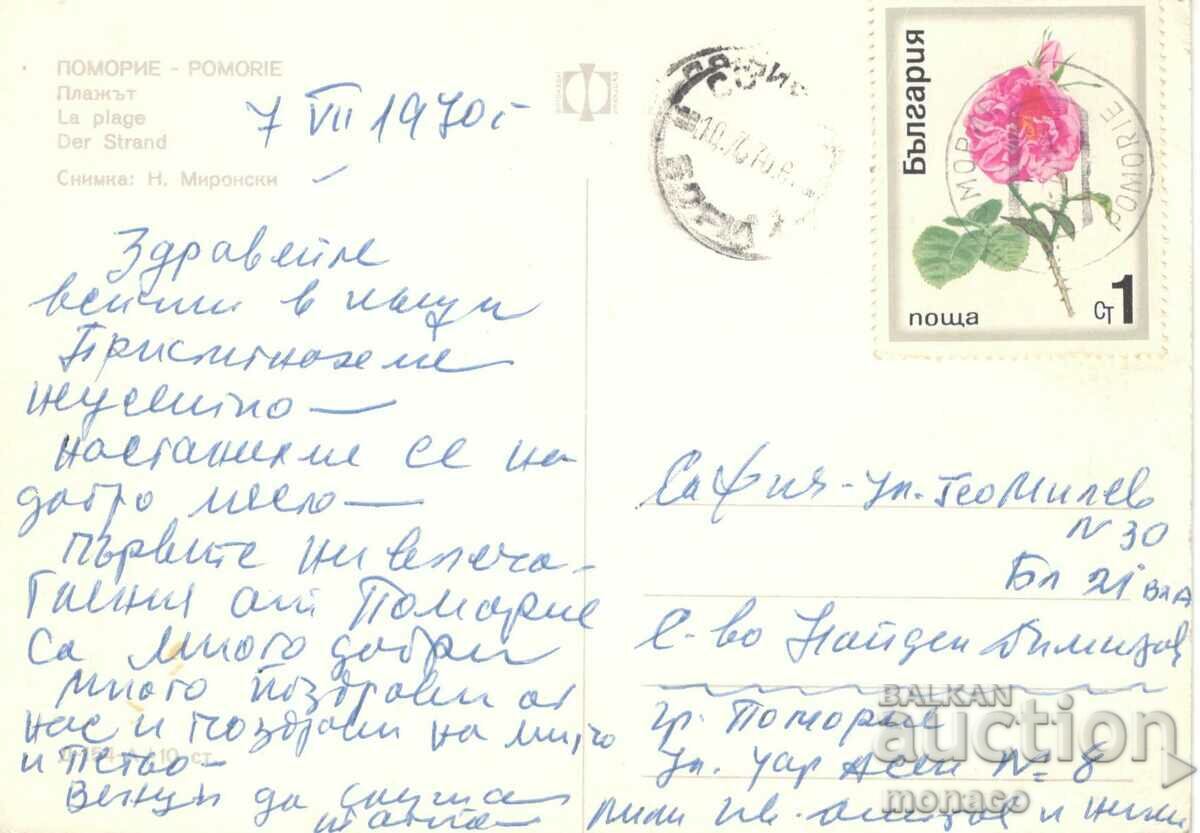 ПОМОРИЕ - POMORIE
Плажът
La plage
Der Strand
Снимка: Н. Миронски
7 VII 1970 г
Здравейте
всички в къщи
Пристигнахме
нусетно —
настанихме се на
добро место —
първите ни впеча-
тления от Поморие
са много добри
много поздрави от
нас и поздрави на Митчо
и Петьо —
Венци да слуша
България
поща
ст 1
ПОМОРИЕ POMORIE
София - ул. Гео Милев
N 30
Бл 21 вх А
С-во Найден
гр. Поморие
ул. Цар Асен № 8
10 ст.
BALKAN
auction
monaco